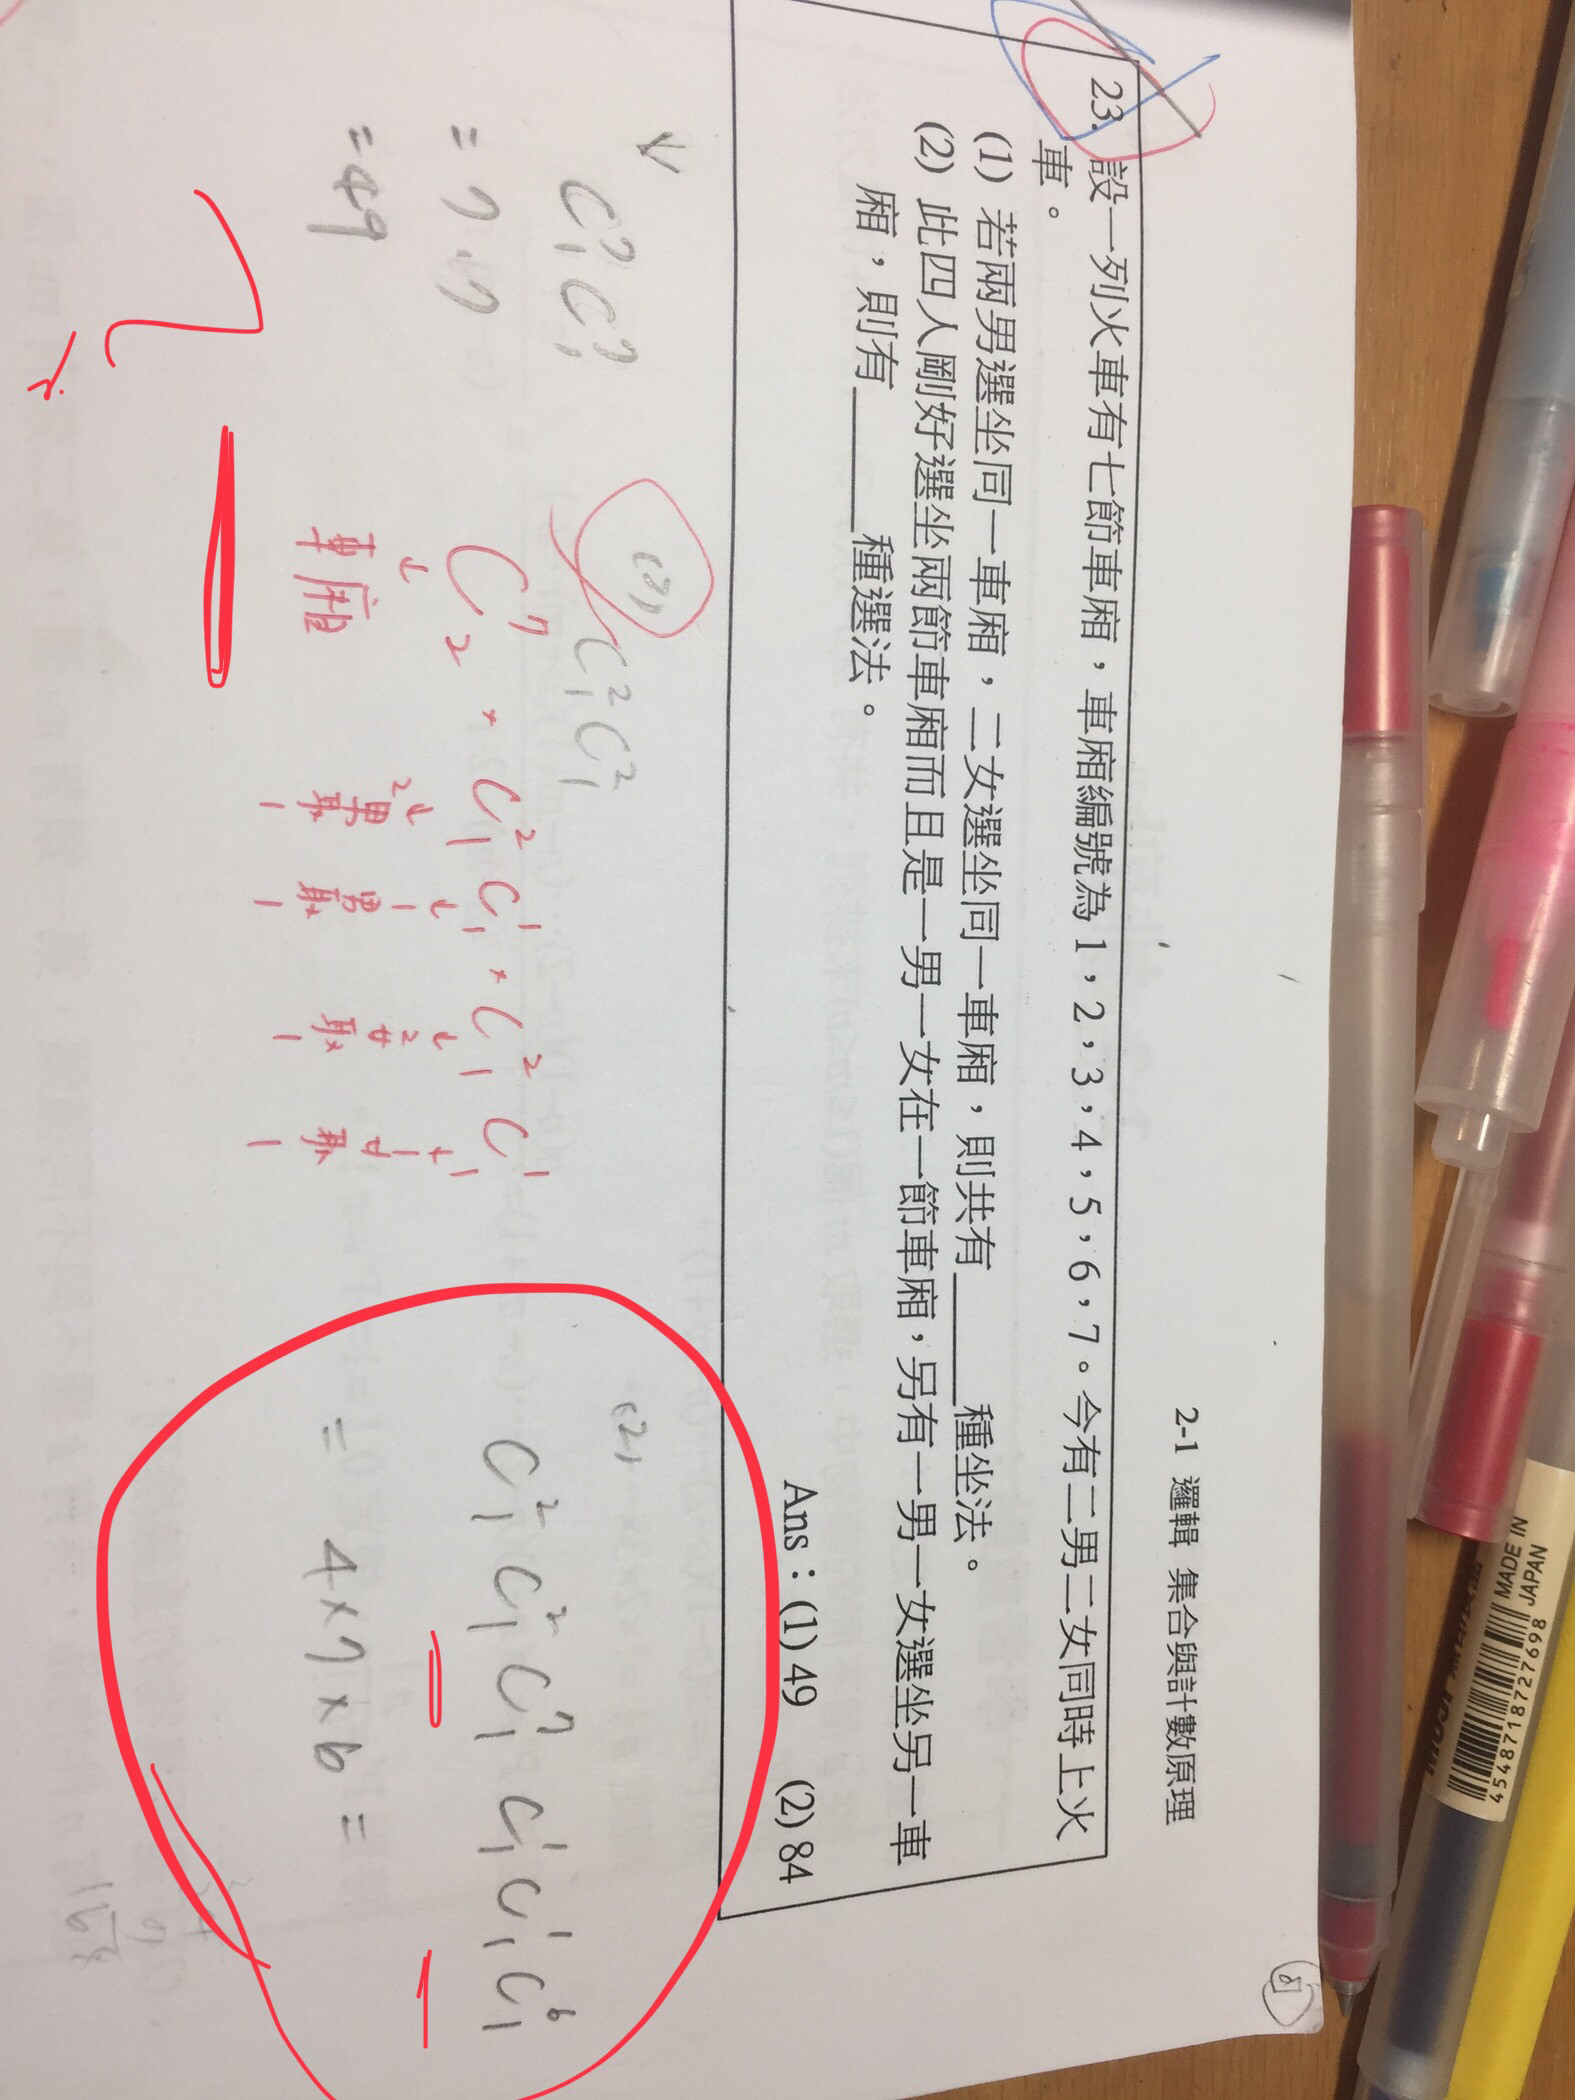 2-1 邏輯 集合與計數原理
23. 設一列火車有七節車廂，車廂編號為 1，2，3，4，5，6，7。今有二男二女同時上火
車。
(1) 若兩男選坐同一車廂，二女選坐同一車廂，則共有______種坐法。
(2) 此四人剛好選坐兩節車廂而且是一男一女在一節車廂，另有一男一女選坐另一車
廂，則有______種選法。
Ans：(1) 49 (2) 84
C⁷₁C⁷₁
= 7·7
= 49
(2) C²₁C²₁
C⁷₂ × C²₁C¹₁ × C²₁C¹₁
↓ ↓ ↓ ↓ ↓
車廂 2男取1 1男取1 2女取1 1女取1
(2)
C²₁C²₁C⁷₁C¹₁C¹₁C⁶₁
= 4×7×6 =
MADE IN
JAPAN
4548718727698